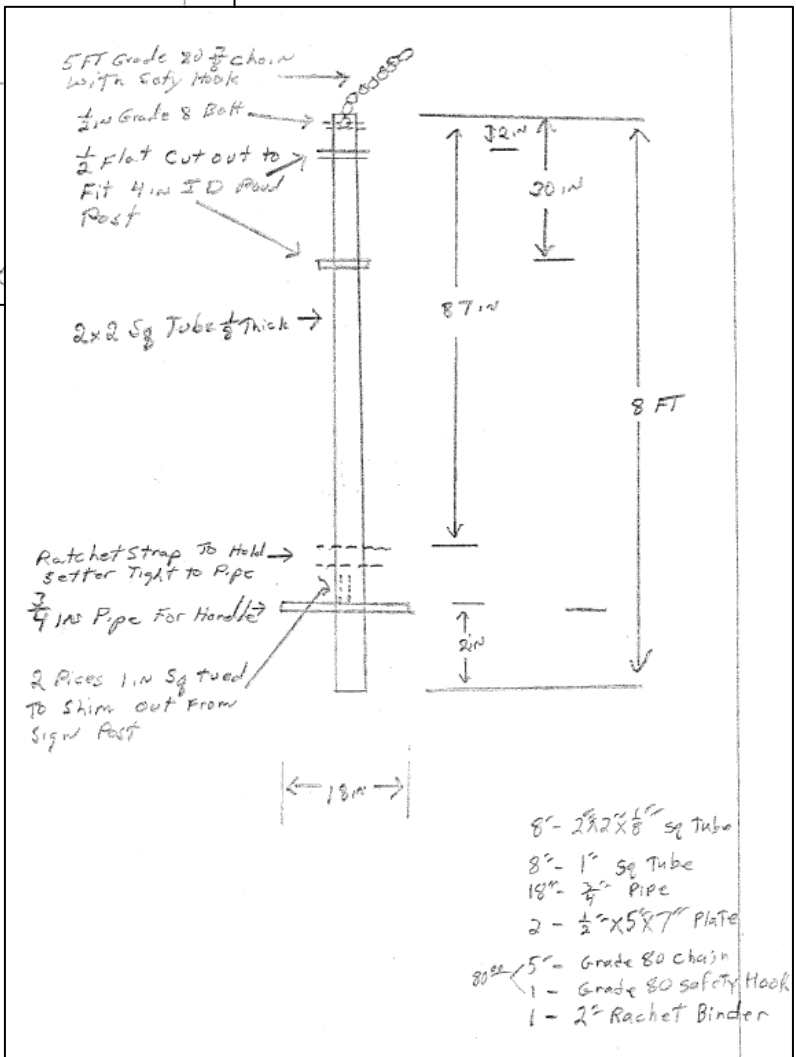 5 FT Grade 80 3/8 chain
with Safty Hook
1/2 in Grade 8 Bolt
1/2 Flat Cut out to
Fit 4 in ID Roud
Post
2x2 Sq Tube 1/8 Thick
Ratchet Strap To Hold
Setter Tight to Pipe
3/4 INS Pipe For Handle
2 Pices 1 in Sq tued
To Shim out From
Sign Post
12 in
30 in
87 in
8 FT
2 in
18 in
8" - 2"x2"x1/8" sq Tube
8" - 1" sq Tube
18" - 3/4" Pipe
2 - 1/2"x5"x7" Plate
5" - Grade 80 Chain
1 - Grade 80 Safety Hook
1 - 2" Rachet Binder